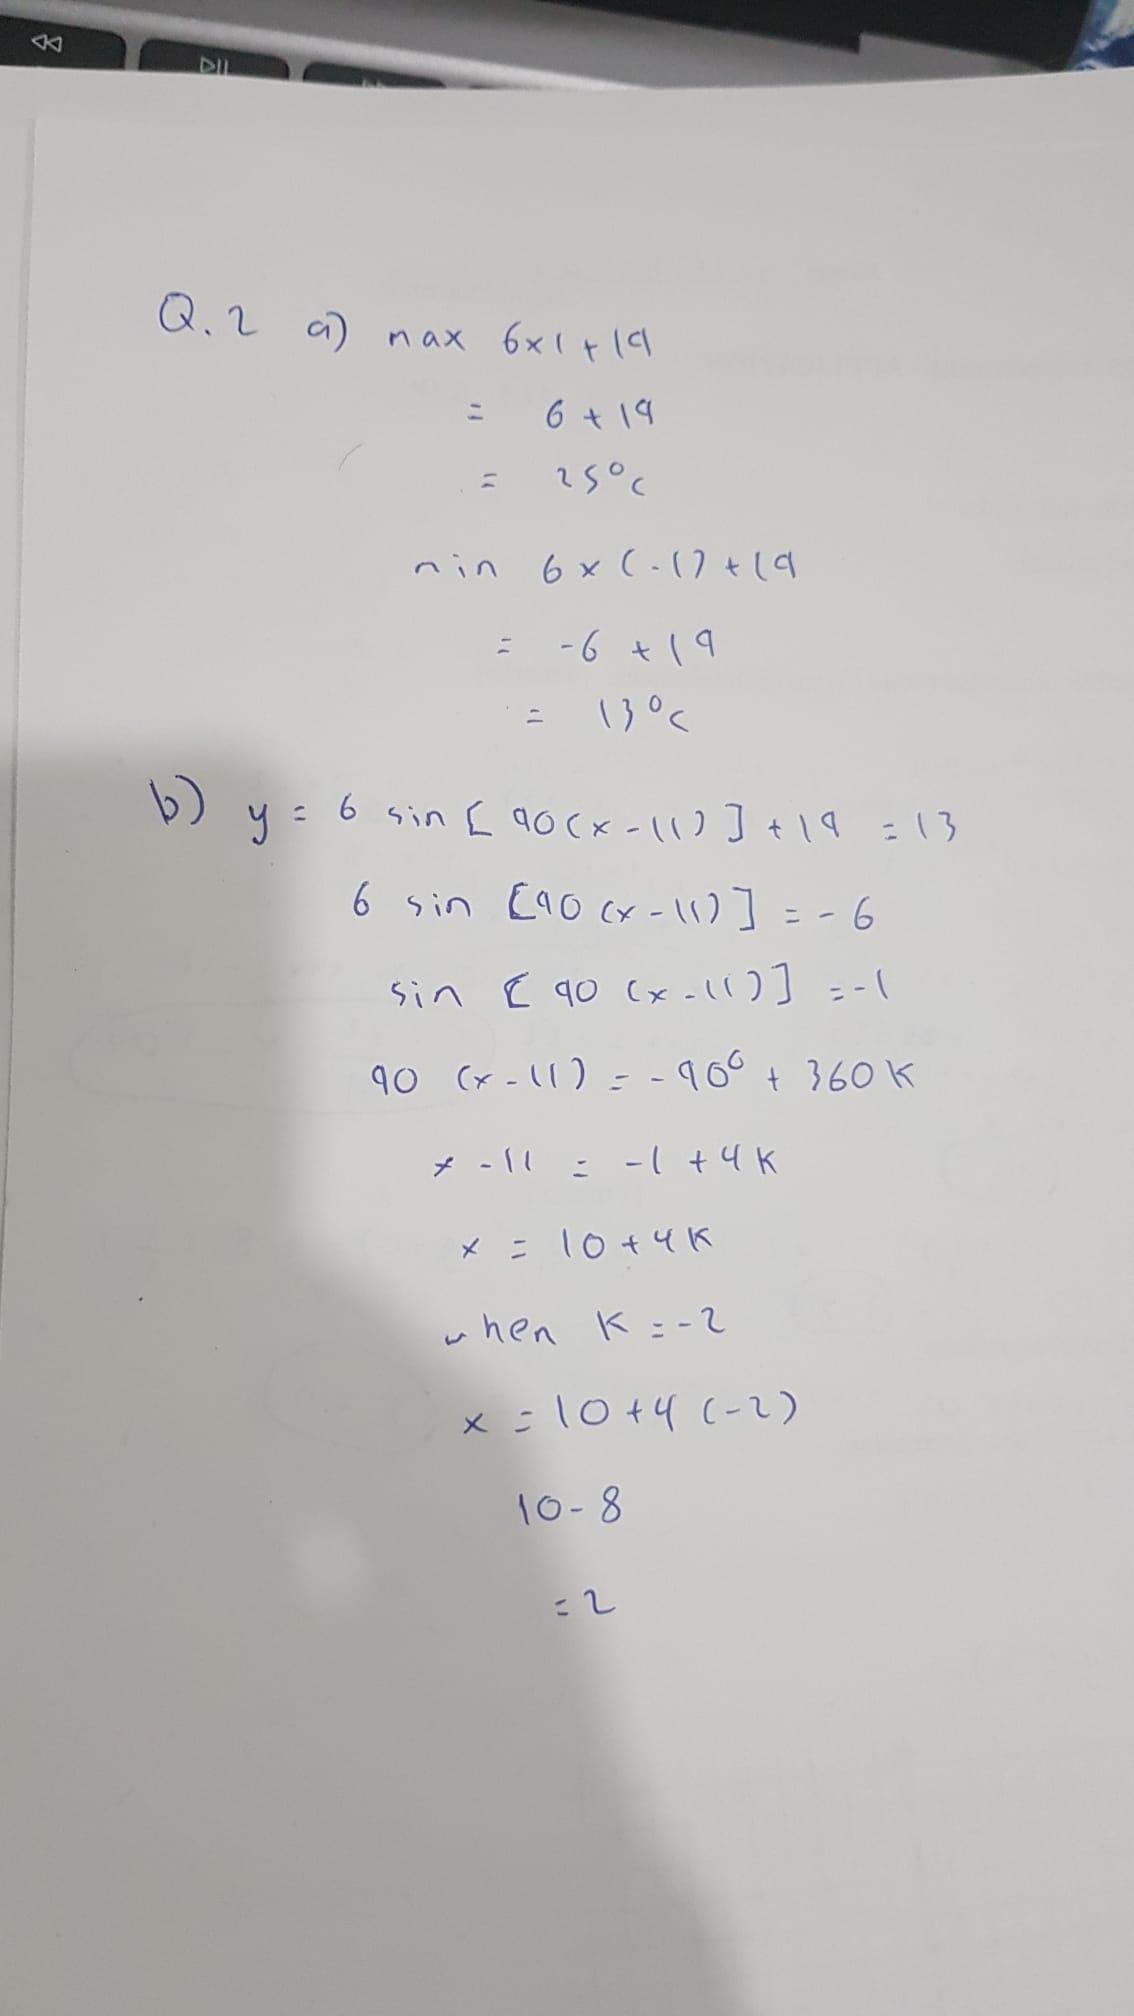 Q. 2 a) max 6x1 + 19
= 6 + 19
= 25°c
min 6 x (-1) + 19
= -6 + 19
= 13°c
b) y = 6 sin [ 90(x - 11) ] + 19 = 13
6 sin [90 (x - 11)] = -6
sin [ 90 (x - 11)] = -1
90 (x - 11) = -90° + 360 K
x - 11 = -1 + 4K
x = 10 + 4K
when K = -2
x = 10 + 4 (-2)
10 - 8
= 2